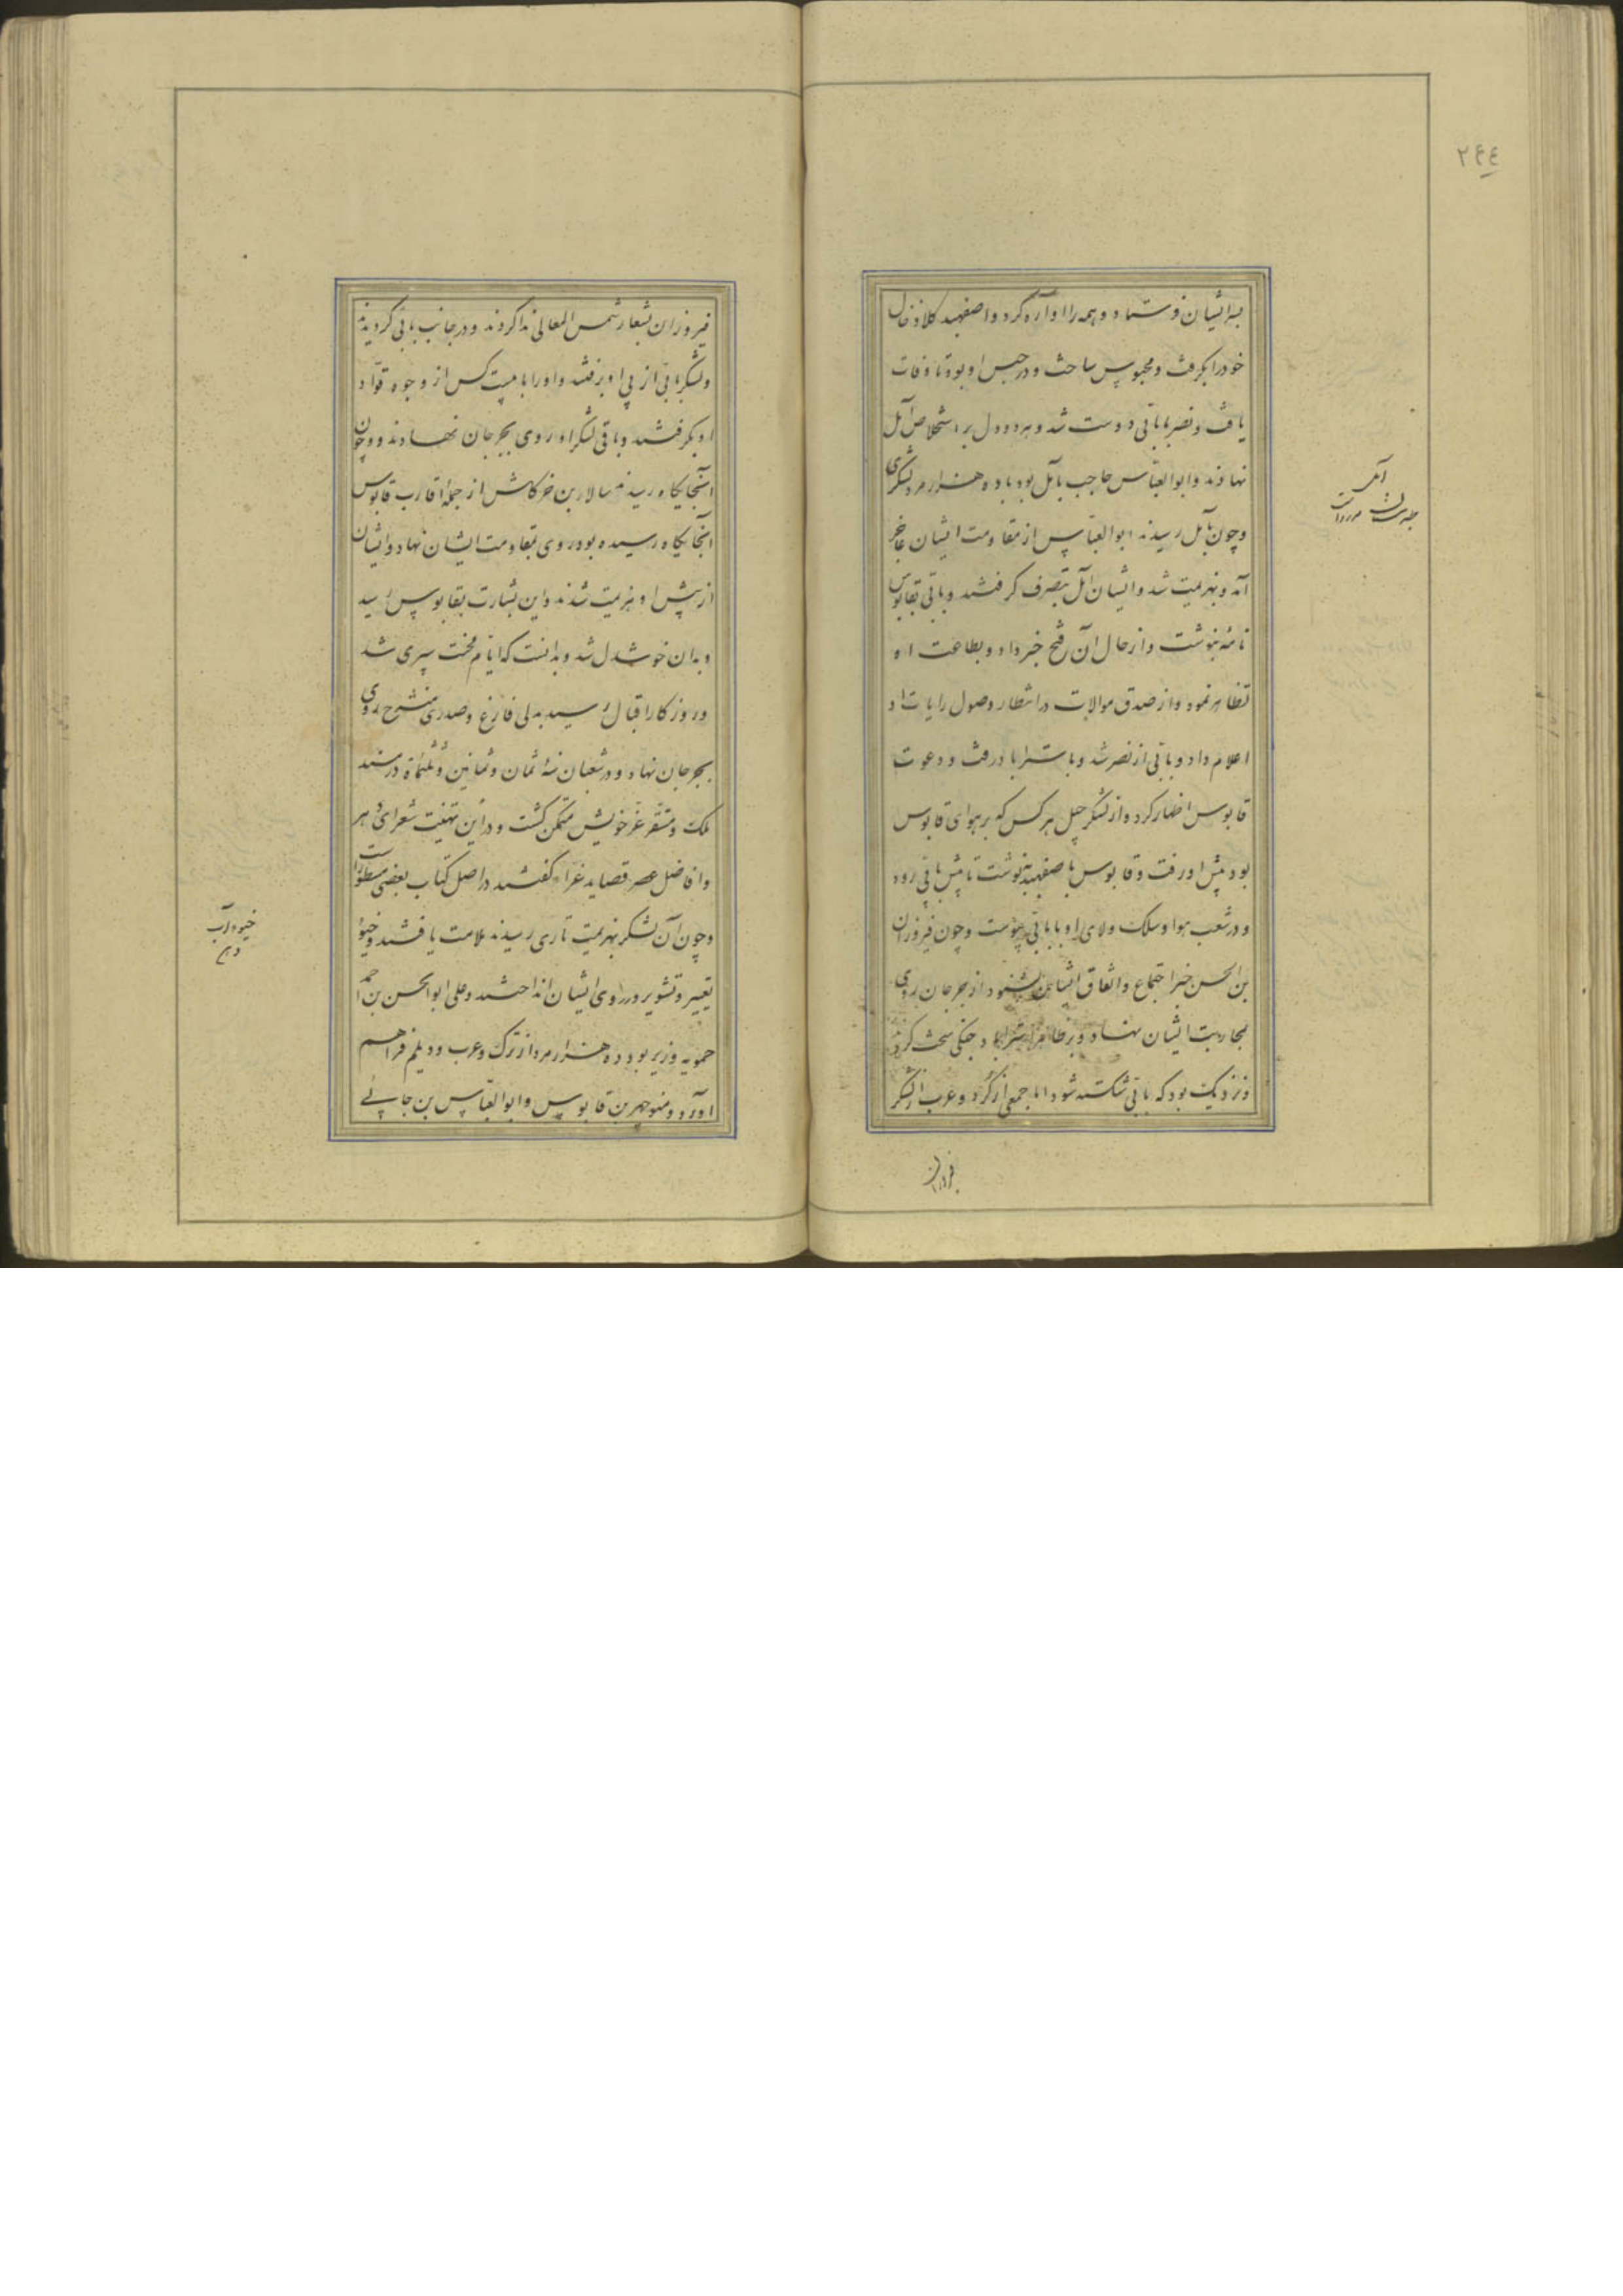 ۲۴۴
بر ایشان فرستاد و همه را اواره کرد و اصفهبد کلاذ خال
خود را بگرفت و محبوس ساخت و در حبس او بود تا وفات
یافت و نصر با باتی دوست شد و هردو دل بر استخلاص آمل
نهادند و ابوالعباس حاجب بآمل بود با دو هزار مرد لشکری
و چون بآمل رسیدند ابوالعباس از مقاومت ایشان عاجز
آمد و بهزیمت شد و ایشان آمل بتصرف گرفتند و باتی بقابوس
نامه بنوشت و از حال آن فتح خبر داد و بطاعت او
تظاهر نمود و از صدق موالات در انتظار وصول رایات او
اعلام داد و باتی از نصر شد و باستراباد رفت و دعوت
قابوس اظهار کرد و از لشکر جیل هر کس که بر هوای قابوس
بود پیش او رفت و قابوس باصفهبد بنوشت تا پیش باتی رود
و در شعب هوا و سلک ولای او با باتی پیوست و چون فیروزان
بن الحسن خبر اجتماع و اتفاق ایشان بشنود از جرجان روی
بمحاربت ایشان نهاد و بر ظاهر استراباد جنگی سخت کردند
و نزدیک بود که باتی شکسته شود اما جمعی از کرد و عرب از لشکر
فیروزان
آمل
طبرستان
فیروزان بشعار شمس المعالی ندا کردند و در جانب باتی گردیدند
و لشکر باتی از پی او برفتند و او را با بیست کس از وجوه قواد
او بگرفتند و باقی لشکر او روی بجرجان نهادند و چون
آنجایکاه رسیدند سالار بن خرکاش از جمله اقارب قابوس
آنجایکاه رسیده بود روی بمقاومت ایشان نهاد و ایشان
از پیش او هزیمت شدند و این بشارت بقابوس رسید
و بدان خوشدل شد و بدانست که ایام محنت سپری شد
و روزکار اقبال رسید بدلی فارغ و صدری منشرح روی
بجرجان نهاد و در شعبان سنهٔ ثمان و ثمانین و ثلثمأة در سند
ملک و مستقر عز خویش متمکن گشت و در این تهنیت شعرای دهر
و افاضل عصر قصاید غراء گفتند در اصل کتاب بعضی مسطور است
و چون آن لشکر بهزیمت تا ری رسیدند ملامت یافتند و خیو
تعییر و تشویر در روی ایشان انداختند و علی ابوالحسن بن احمد
حمویه وزیر بود ده هزار مرد از ترک و عرب و دیلم فراهم
آورد و منوچهر بن قابوس و ابوالعباس بن جائی
خیو آب
دهن